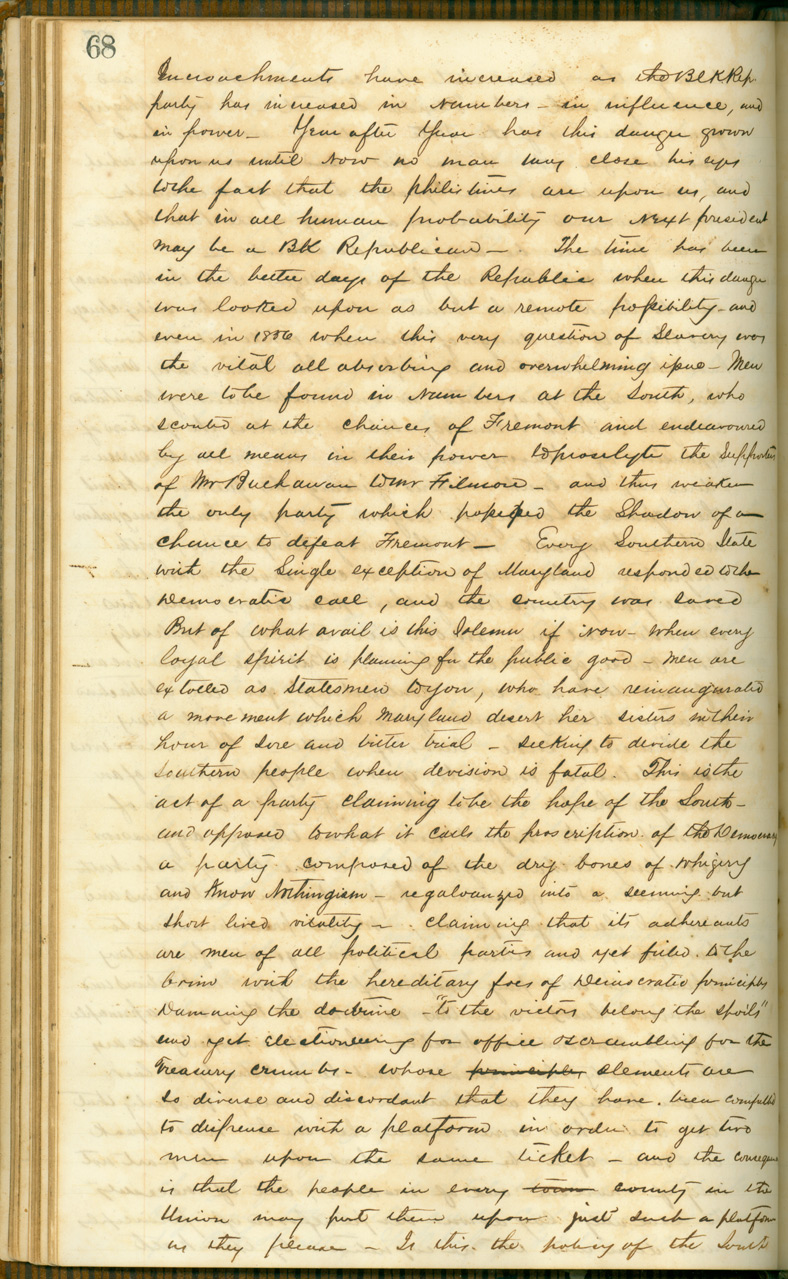 68
Incroachments have increased as the BLK Rep.
party has increased in Numbers - in influence, and
in power - Year after Year has this danger grown
upon us until Now no man may close his eyes
to the fact that the philistines are upon us, and
that in all human probability our Next president
may be a BK Republican -. The time has been
in the better days of the Republic when this danger
was looked upon as but a remote possibility - and
even in 1856 when this very question of Slavery was
the vital all absorbing and overwhelming issue - Men
were to be found in Numbers at the South, who
scouted at the chances of Fremont and endeavoured
by all means in their power to proselyte the Supporters
of Mr Buchanan to Mr Filmore - and thus weaken
the only party which possessed the Shadow of a
chance to defeat Fremont - Every Southern State
with the Single exception of Maryland responded to the
Democratic call, and the country was saved
But of what avail is this Solemn if Now - when every
loyal spirit is planning for the public good - men are
extolled as Statesmen to you, who have reinaugurated
a movement which Maryland desert her sisters in their
hour of sore and bitter trial - seeking to divide the
Southern people when devision is fatal. This is the
act of a party claiming to be the hope of the South -
and opposed to what it calls the proscription of the Democracy
a party composed of the dry bones of Whigery
and Know Nothingism - regalvanized into a seeming but
short lived vitality - claiming that its adhereants
are men of all political parties and yet filled to the
brim with the hereditary foes of Democratic principles
Damning the doctrine - "to the victors belong the spoils"
and yet Electioneering for office & scrambling for the
Treasury crumbs - whose principles elements are
so diverse and discordant that they have been compelled
to dispense with a platform in order to get two
men upon the same ticket - and the consequence
is that the people in every town county in the
Union may put them upon just such a platform
as they please - Is this the policy of the South